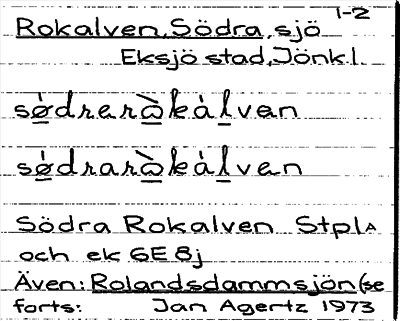 1-2
Rokalven, Södra, sjö
Eksjö stad, Jönk.l.
sǿdrerὼkàlven
sǿdrarὼkàlven
Södra Rokalven StplA
och ek 6E8j
Även: Rolandsdammsjön (se
forts: Jan Agertz 1973